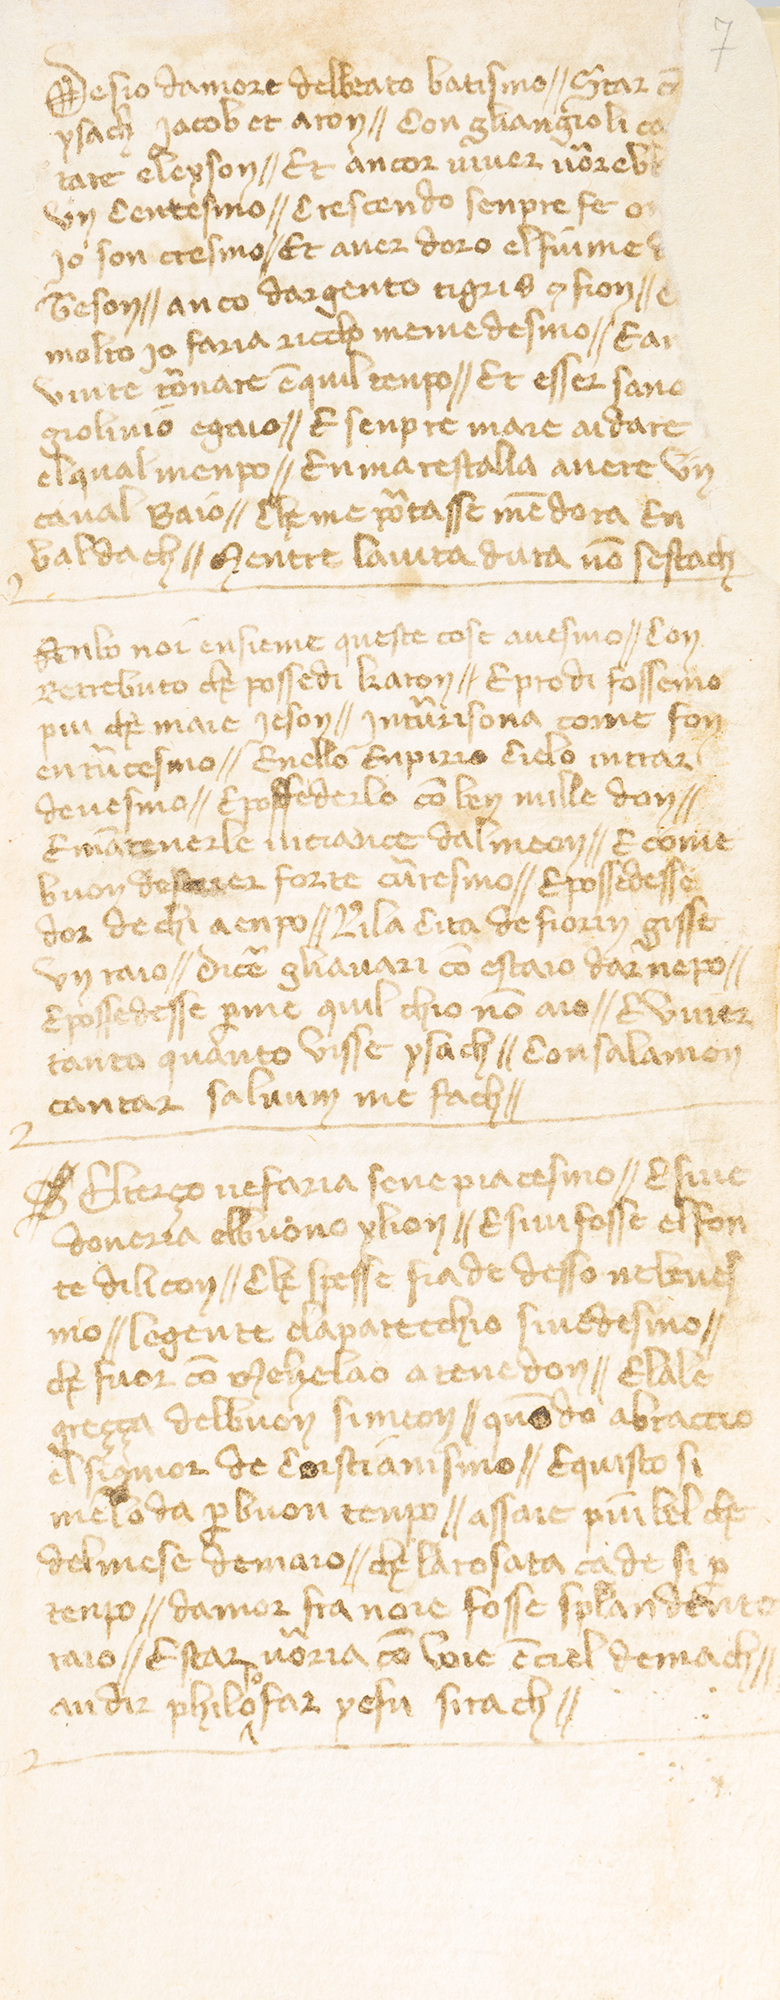 7
Desio damore delbeato batismo // Star cō
ysach Jacob et aron // Con gliangioli ca
tare eleyson // Et ancor viver vōrebb
vn Centesmo // Crescendo senpre fe
Jo son cresmo // Et aver doro elfiume
Geson // anco dargento tigris fison //
molto jo faria riccho meme desmo // E
vivte tōnare ē quil tenpo // Et esser sano
giolivio egaio // E senpre maie aidare
elqual menpo // En mia restalla avere vn
caval Baio // Che me pōtasse mēdora En
baldach // Mentre lavita dura nō sestach
Anbo noi ensieme queste cose avesmo // Con
Retrebuto che possedi karon // E prodi fossemo
piu che maie Jeson // come fon
// Enello Enpirio Cielo intrar
devesmo // E possederlo cō ben mille don //
E mātenerle dalmeon // E come
buon forte // E possedesse
dor de chi aenpo // Nila Cita de fiorin gisse
vn raio // Dicē gliavari cō estaio darnepo //
E possedesse per me quil chio nō aio // E viver
tanto quanto visse ysach // Con salamon
cantar salvum me fach //
El terço ve faria seve piacesmo // E sive
doneria elbuono ylion // E sivi fosse elfon
te dilicon // Che spesse fiade desso nebeves
mo // legente elaparecchio sivedesmo //
che fuor cō Mehelao a tenedon // Elale
greçça delbuon simeon // quādo abraccio
elsignior de Cristianismo // E quisto si
mēloda per buon tenpo // assaie piu bel che
delmese demaio // che larosata cade si per
tenpo // damor fra noie fosse splandento
raio // E star vōria cō voie ē ciel demach //
audir philosofar yesu sirach //